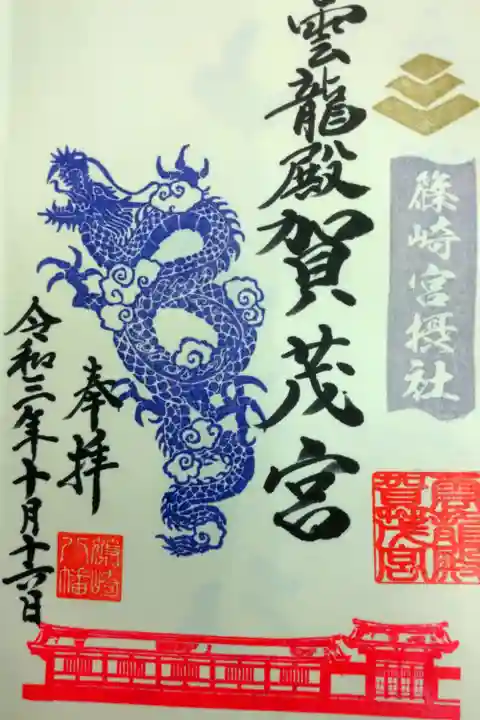 篠崎宮摂社
雲龍殿
賀茂宮
雲龍殿賀茂宮
奉拝
篠崎
八幡
令和三年十月十六日